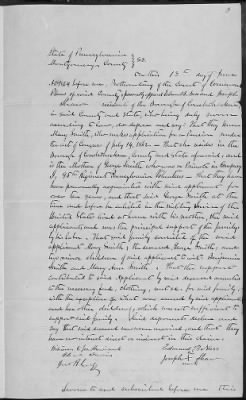 State of Pennsylvania
Montgomery County } SS.
On this 13th day of June
before me, Prothonotary of the Court of Common
Pleas of said County, personally appeared and Joseph
resident of the Borough of Conshohocken
in said County and State, who being duly sworn
according to law, do depose and say: That they know
Mary Smith, who makes application for a pension under
the act of Congress of July 14, 1862. That she resides in the
Borough of Conshohocken, County and State aforesaid, and
is the Mother of George Smith who was a Private in Company
Regiment Pennsylvania Volunteers. That they
have been personally acquainted with said applicant for
over ten years, and that said George Smith at the
time and before he enlisted in the Military Service of the
United States lived at home with his mother, the said
applicant and was the principal support of the family
by his labor. That said family consisted of the said
applicant Mary Smith, the deceased George Smith, and
two minor children of said applicant to wit: Benjamin
Smith and Mary Smith. That the support
contributed to said applicant by said deceased consisted
in the necessary food, clothing, and for said family,
with the exception of what was earned by said applicant
and her other children, which was not sufficient to
support said family. Said deponents further
say that said deceased was never married, and that they
have no interest direct or indirect in this claim.
Joseph
Sworn to and subscribed before me this